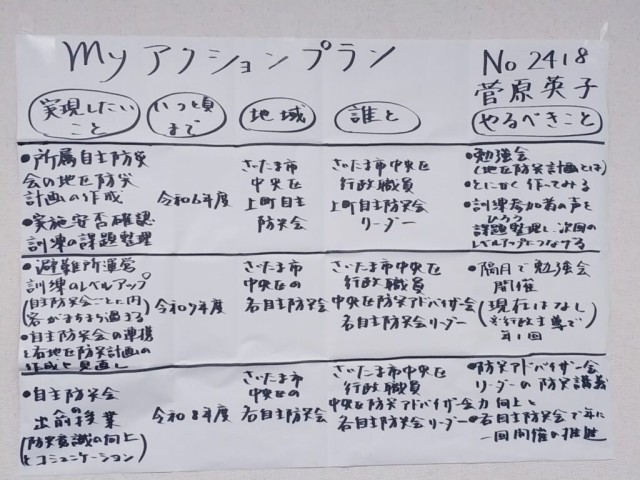 Myアクションプラン
No 2418
菅原英子
実現したいこと
いつ頃まで
地域
誰と
やるべきこと
●所属自主防災
会の地区防災
計画の作成
●実施安否確認
訓練の課題整理
令和6年度
さいたま市
中央区
上町自主
防災会
さいたま市中央区
行政職員
上町自主防災会
リーダー
●勉強会
(地区防災計画とは)
とにかく作ってみる
●訓練参加者の声を
ひろう
課題整理し、次回の
レベルアップにつなげる
●避難所運営
訓練のレベルアップ
(自主防災会ごとに内
容がまちまち過ぎる)
●自主防災会の連携
と各地区防災計画の
作成と見直し
令和7年度
さいたま市
中央区の
各自主防災会
さいたま市中央区
行政職員
中央区防災アドバイザー会
各自主防災会リーダー
●隔月で勉強会
開催
(現在はなし
※行政主導で
年1回)
●自主防災会
の
出前授業
(防災意識の向上
とコミュニケーション)
令和8年度
さいたま市
中央区の
各自主防災会
さいたま市中央区
行政職員
中央区防災アドバイザー会
各自主防災会リーダー
●防災アドバイザー会
リーダーの防災講義
力向上と
●各自主防災会で年に
一回開催の推進